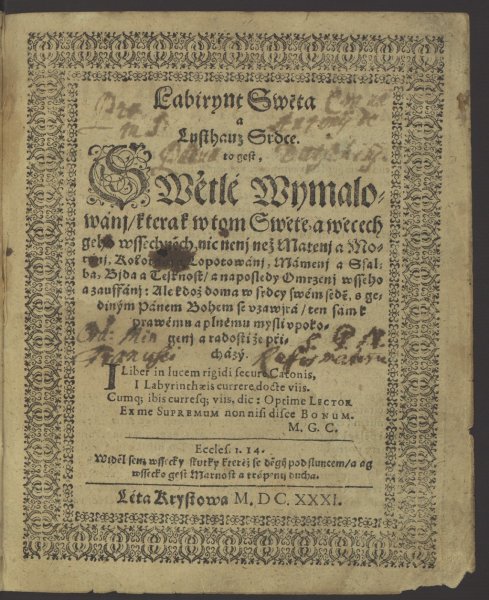 Labirynt Swěta
a
Lusthauz Srdce.
to gest,
Swětlé Wymalo-
wánj/ kterak w tom Swětě, a wěcech
geho wssechněch, nic nenj než Matenj a Mo-
Lopotowánj, Mámenj a Ssal-
ba, Bjda a Tesknost/ a naposledy Omrzenj wsseho
a zauffánj: Ale kdož doma w srdcy swém sedě, s ge-
diným Pánem Bohem se vzawjrá/ ten sám k
prawému a plnému mysli vpoko-
genj a radosti že při-
cházý.
I Liber in lucem rigidi secure Catonis,
I Labyrinthæis currere, docte viis.
Cumq; ibis curresq; viis, dic: Optime LECTOR
Ex me SUPREMUM non nisi disce BONUM.
M. G. C.
Eccles. 1. 14.
Widěl sem wssecky skutky kteréž se děgj pod sluncem/ a ag
wssecko gest Marnost a trápenj ducha.
Léta Krystowa M. DC. XXXI.